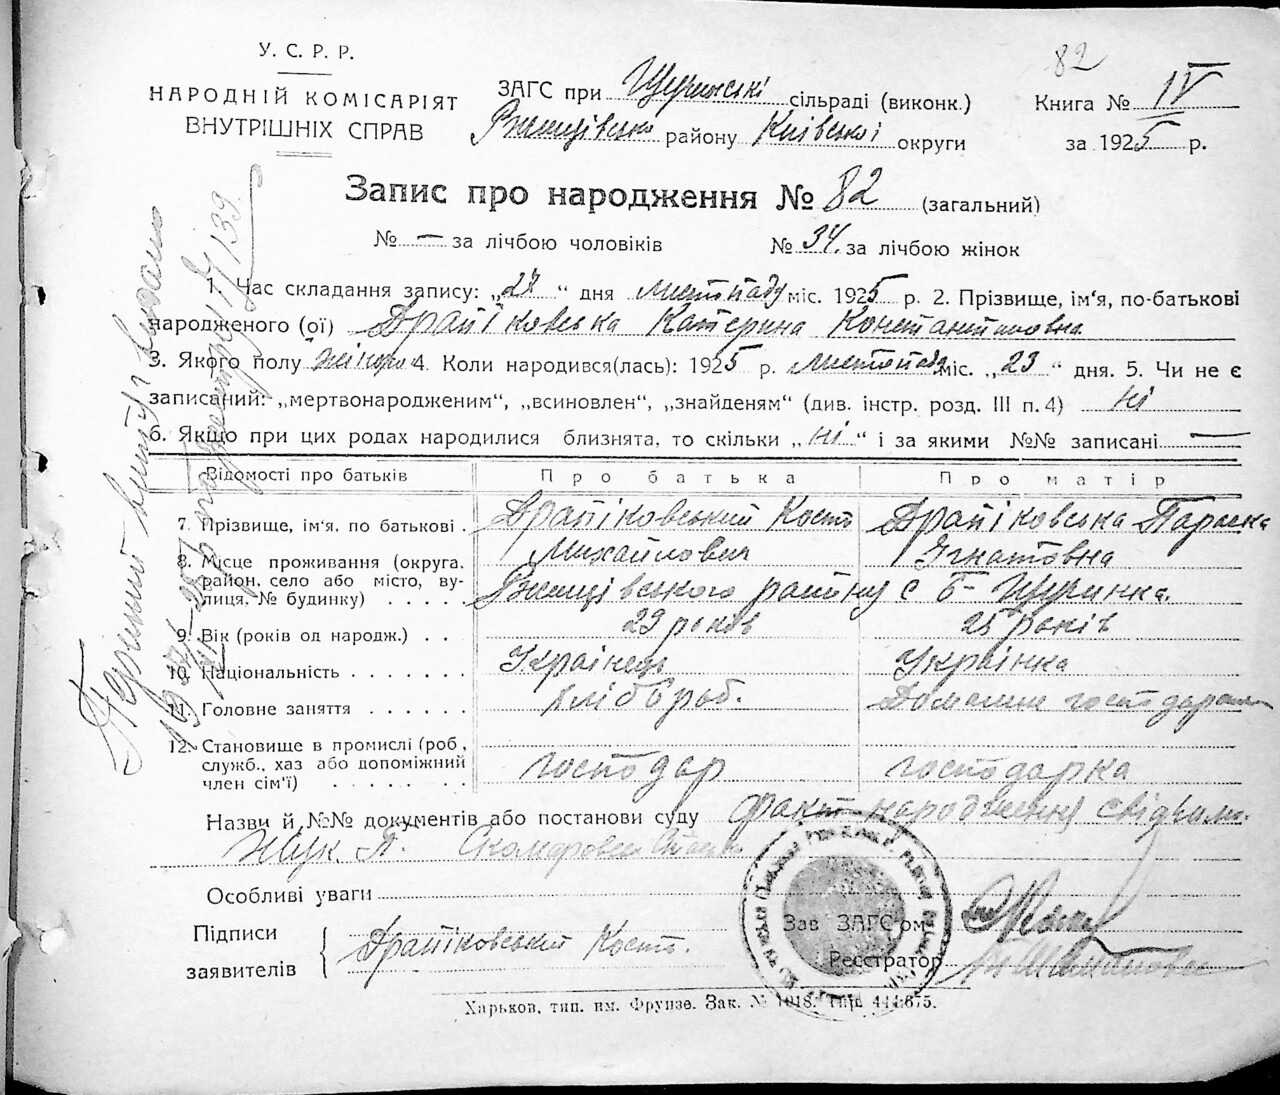 82
У. С. Р. Р.
НАРОДНІЙ КОМІСАРІЯТ
ВНУТРІШНІХ СПРАВ
ЗАГС при Щучинські сільраді (виконк.)
Ржищівсько району Київської округи
Книга № IV
за 1925 р.
Запис про народження № 82 (загальний)
№ — за лічбою чоловіків № 34. за лічбою жінок
1. Час складання запису: „27" дня листопаду міс. 1925 р. 2. Прізвище, ім'я, по-батькові
народженого (ої) Драпіковська Катерина Константиновна
3. Якого полу жіночо 4. Коли народився(лась): 1925 р. листопада міс. „23" дня. 5. Чи не є
записаний: „мертвонародженим", „всиновлен", „знайденям" (див. інстр. розд. III п. 4) ні
6. Якщо при цих родах народилися близнята, то скільки „ні" і за якими №№ записані —
Відомості про батьків Про батька Про матір
7. Прізвище, ім'я, по батькові . Драпіковський Кость Драпіковська Параска
Михайлович Ігнатовна
8. Місце проживання (округа,
район, село або місто, ву-
лиця, № будинку) . . . . . Ржищівського району с Б-Щучинка.
9. Вік (років од народж.) . . 29 років 25 років
10. Національність . . . . . . . Українець Українка
11. Головне заняття . . . . . . хлібороб. Домашне господарство
12. Становище в промислі (роб,
служб., хаз або допоміжний
член сім'ї) . . . . . . . . господар господарка
Назви й №№ документів або постанови суду факт народження свідчили
Жук П.
Особливі уваги
Підписи
заявителів
Драпіковський Кость.
Зав ЗАГС'ом
Реєстратор
Харьков, тип. им. Фрунзе. Зак. № 1018. Тир. 444.675.
Первий витяг видано